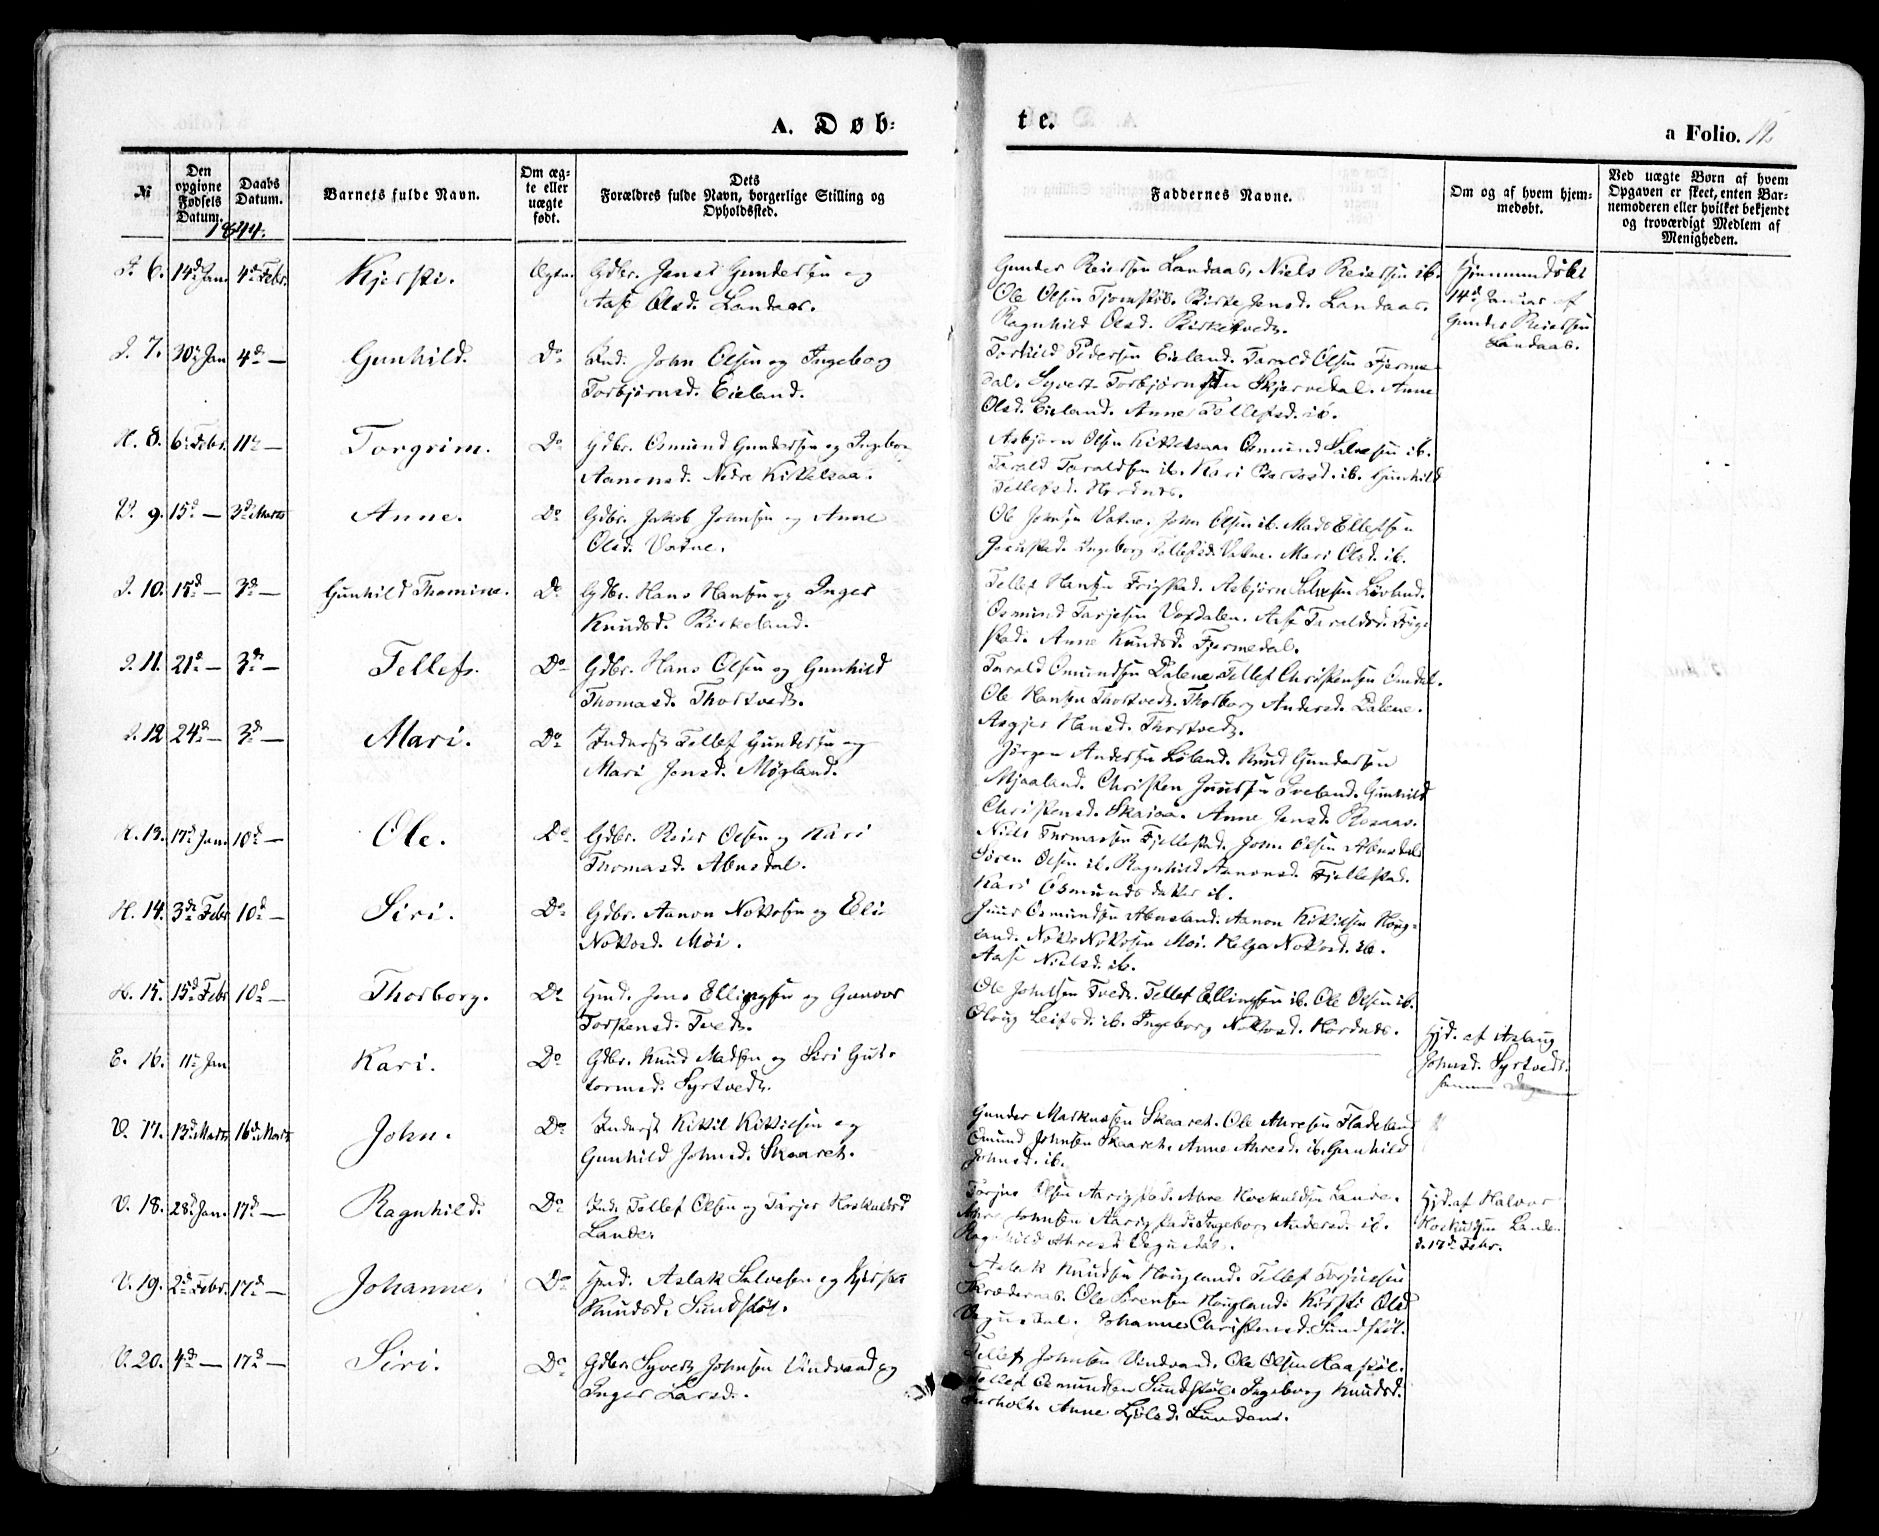 A. Døb-
te.
a Folio. 12
№
Den opgivne Fødsels Datum.
Daabs Datum.
Barnets fulde Navn.
Om ægte eller uægte født.
Dets Forældres fulde Navn, borgerlige Stilling og Opholdssted.
Faddernes Navne.
Om og af hvem hjemmedøbt.
Ved uægte Børn af hvem Opgaven er skeet, enten Barnemoderen eller hvilket bekjendt og troværdigt Medlem af Menigheden.
1844.
6. 14d Jan. 4d Febr. Kjersti. Ægte. Gdbr. Jens Gundersen og
Aase Olsd. Landaas.
Gunder Reiersen Landaas, Niels Reiersen ib.
Ole Olsen Birke Jensd. Landaas.
Ragnhild Olsd. Birketvedt.
Hjemmedøbt
14d Januar af
Gunder Reiersen
Landaas.
7. 30 Jan 4d — Gunhild. Do Ind. John Olsen og Ingeborg
Torbjørnsd. Eieland.
Torkild Pedersen Eieland. Tarald Olsen Fjerme-
dal. Syvert Torbjørnsen Skjervedal. Anne
Olsd. Eieland. Anne Tellefsd. ib.
H. 8. 6 Febr. 11 — Torgrim. Do Gdbr. Osmund Gundersen og Ingeborg
Aanonsd. Nedre Kittelsaa.
Asbjørn Olsen Kittelsaa. Osmund Salvesen ib.
Tarald Taraldsen ib. Kari ib. Gunhild
Tellefsd. Hordnes.
V. 9. 15d — 3d Marts Anne. Do Gdbr. Jakob Johnsen og Anne
Olsd. Vatne.
Ole Johnsen Vatne. John Olsen ib. Mads Ellefsen
Ingeborg Tellefsd. Vatne. Mari Olsd. ib.
10. 15d — 3d — Gunhild Thomine. Do Gdbr. Hans Hansen og Inger
Knudsd. Birkeland.
Tellef Hansen Frigstad. Asbjørn Salvesen Løvland.
Osmund Tarjesen Vordalen. Aase Taraldsd. Frig-
stad. Anne Knudsd. Fjermedal.
11. 21d — 3d — Tellef. Do Gdbr. Hans Olsen og Gunhild
Thomasd. Thortvedt.
Tarald Omundsen Dalene. Tellef Christensen Omdal.
Ole Hansen Thortvedt. Thorborg Andersd. Dalene.
Asgjer Hansd. Thortvedt.
12 24d — 3d — Mari. Do Inderst Tellef Gundersen og
Mari Jensd. Møgland.
Jørgen Andersen Løland. Knud Gundersen
Mjaaland. Christen Juulsen Iveland. Gunhild
Christensd. Skaiaa. Anne Jensd. Rosaas.
H. 13. 17d Jan. 10d — Ole. Do Gdbr. Reier Olsen og Kari
Thomasd. Abusdal.
Niels Thomassen Fjellestad. John Olsen Abusdal
Søren Olsen ib. Ragnhild Aanonsd. Fjellestad.
Kari Osmundsdatter ib.
H. 14. 3d Febr 10d — Siri. Do Gdbr. Aanon Nottosen og Eli
Nottosd. Møi.
Juur Osmundsen Abusland. Aanon Kittilsen Houg-
land. Notto Nottosen Moi. Helga Nottosd. ib.
Aase Nielsd. ib.
H. 15. 15d Febr 10d — Thorborg. Do Hmd. Jens Ellingsen og Gunvor
Torstensd. Tvedt.
Ole Johnsen Tvedt. Tellef Ellingsen ib. Ole Olsen ib.
Oloug Leifsd. ib. Ingeborg Nottosd. Hordnes.
E. 16. 11 Jan Kari. Do Gdbr. Knud Madsen og Siri Gut-
tormsd. Syrtvedt.
Hjd. af Aslaug
Johnsd. Syrtvedt
samme Dag
V. 17. 13d Marts 16d Marts John. Do Inderst Kittil Kittilsen og
Gunhild Johnsd. Skaaret.
Gunder Markussen Skaaret. Ole Ahresen Fladeland
Omund Johnsen Skaaret. Anne Ahresd. ib. Gunhild
Johnsd. ib.
V. 18. 28d Jan. 17d — Ragnhild. Do Ind. Tellef Olsen og Tarjer Hoskuldsd
Lande.
Torjus Olsen Aarigstad. Ahre Hoskuldsen Lande.
Ahre Johnsen Aarigstad. Ingeborg Andersd. ib.
Ragnhild Ahresd. Vegusdal.
Hjd. af Halvor
Hoskuldsen Lande
d. 17d Febr.
V. 19. 2d Febr. 17d — Johanne. Do Hmd. Aslak Salvesen og Kjersti
Knudsd. Sundstøl.
Aslak Knudsen Hougland. Tellef Torjussen
Skrædernes. Ole Sørensen Hougland. Kirsti Olsd
Vegusdal. Johanne Christensd. Sundstøl.
V. 20. 4d — 17d — Siri. Do Gdbr. Syvert Johnsen Vindvand og
Inger Larsd.
Tellef Johnsen Vindvand. Ole Olsen Haastøl.
Tellef Osmundsen Sundstøl. Ingeborg Knudsd.
Anne Ljølsd.